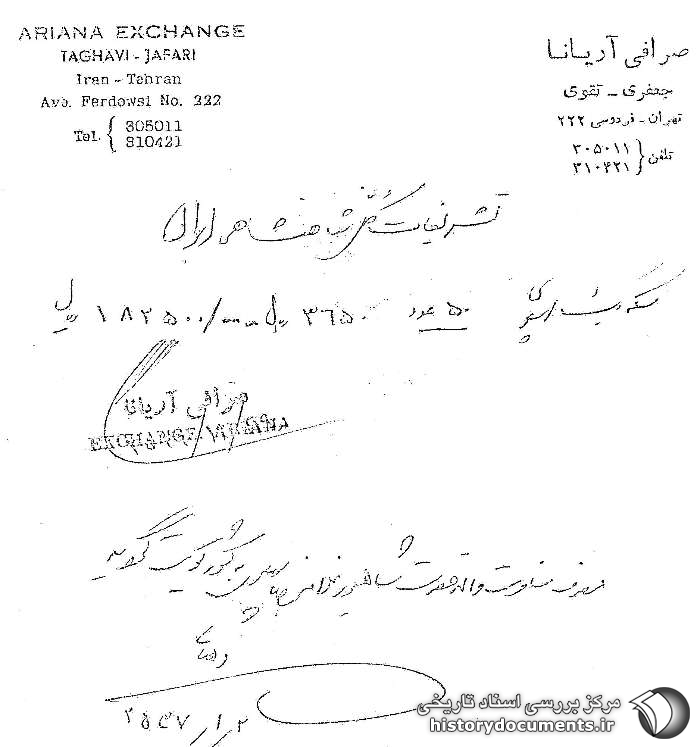 ARIANA EXCHANGE
TAGHAVI - JAFARI
Iran - Tehran
Ave. Ferdowsi No. 222
Tel. { 305011
310421
صرافی آریانا
جعفری - تقوی
تهران - فردوسی ۲۲۲
تلفن { ۳۰۵۰۱۱
۳۱۰۴۲۱
تشریفات کل شاهنشاهی ایران
سکه پهلوی ۵۰ عدد ۳۶۵۰ ریال ۱۸۲۵۰۰/ ریال
صرافی آریانا
EXCHANGE ARIANA
به کشور کویت گردید
مرکز بررسی اسناد تاریخی
historydocuments.ir